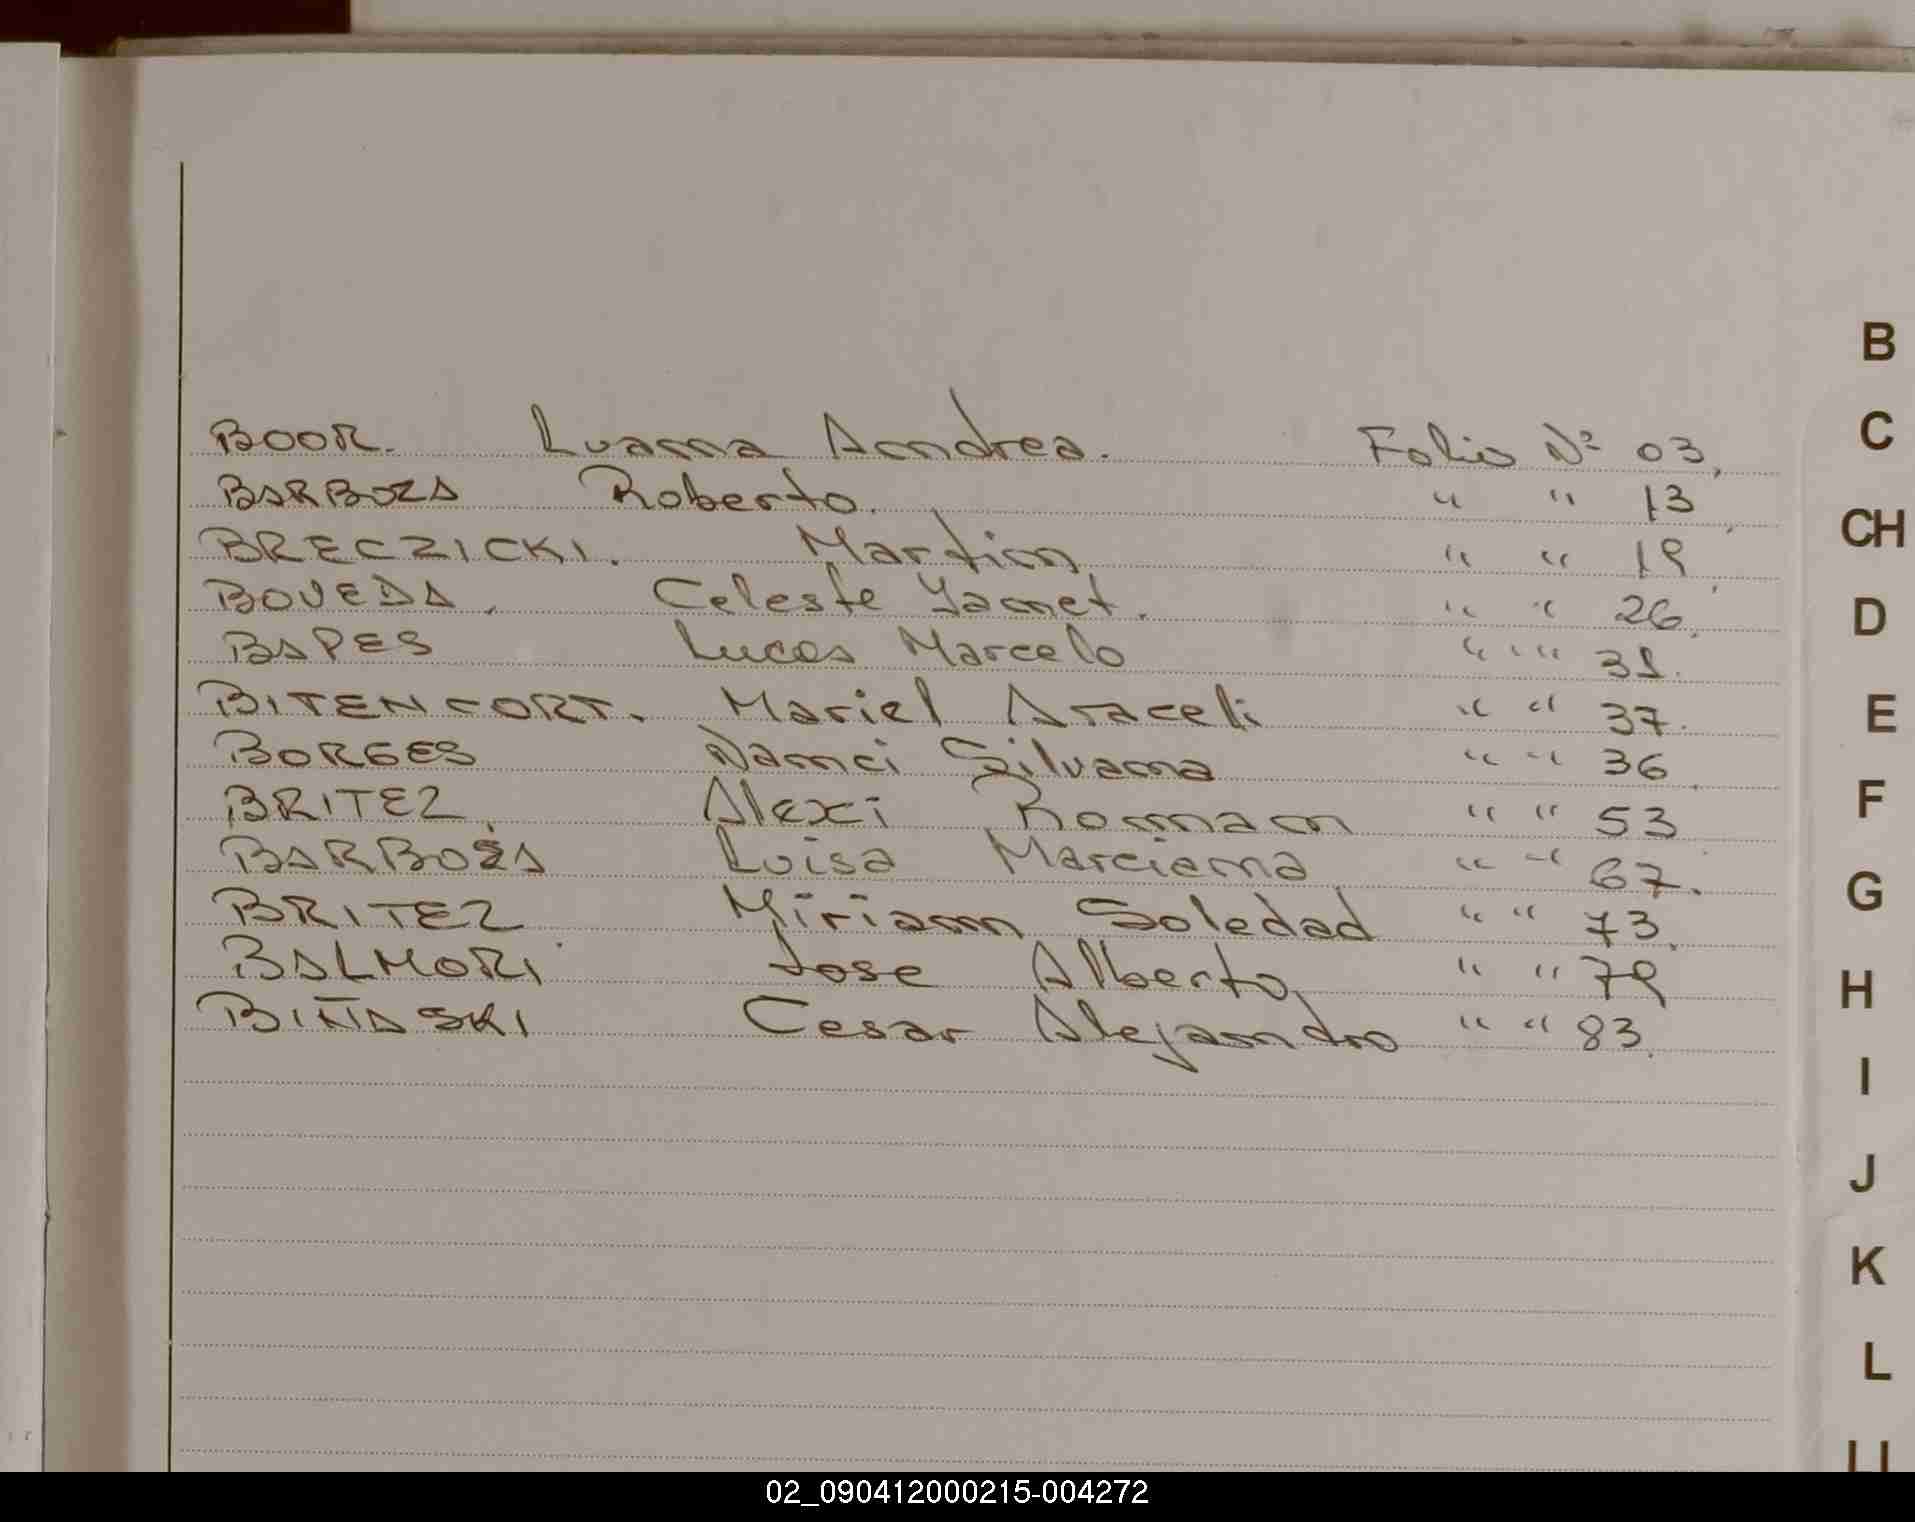 BOOR. Luana Andrea. Folio Nº 03,
BARBOZA Roberto. " " 13
BRECZICKI. Martin " " 19
BOVEDA. Celeste Yanet. " " 26.
BAPES Lucas Marcelo " " 31.
BITENCORT. Mariel Araceli " " 37.
BORGES Nanci Silvana " " 36.
BRITEZ. Alexi Roman " " 53
BARBOZA Luisa Marciana " " 67.
BRITEZ Miriam Soledad " " 73.
BALMORI Jose Alberto " " 79
BIÑASKI Cesar Alejandro " " 83.
B
C
CH
D
E
F
G
H
I
J
K
L
02_090412000215-004272